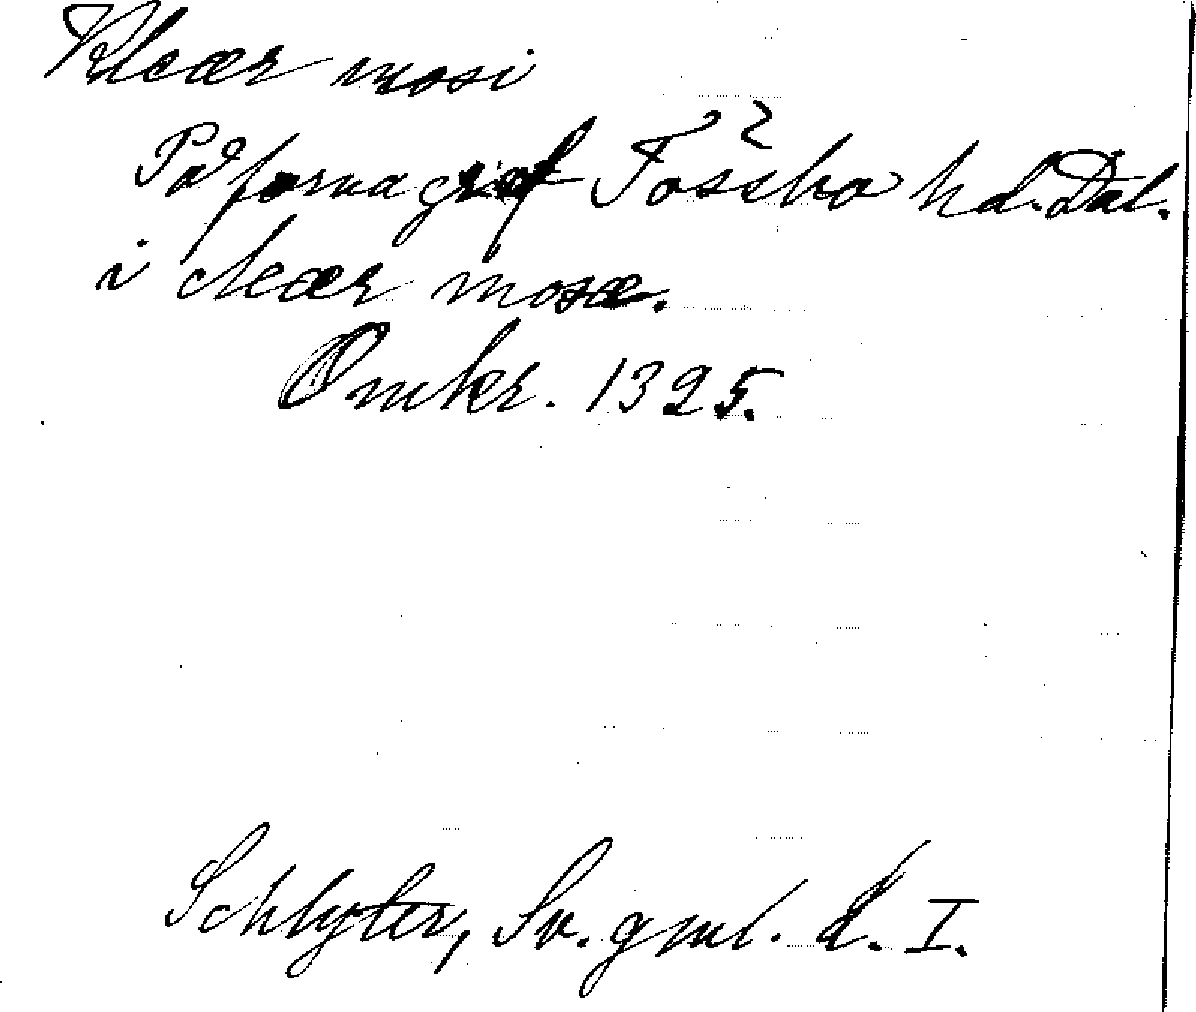 Kleær mosi
På forna græf Tössbo hd. Dal.
i cleær mosæ.
Omkr. 1325.
Schlyter, Sv. gml. l. I.